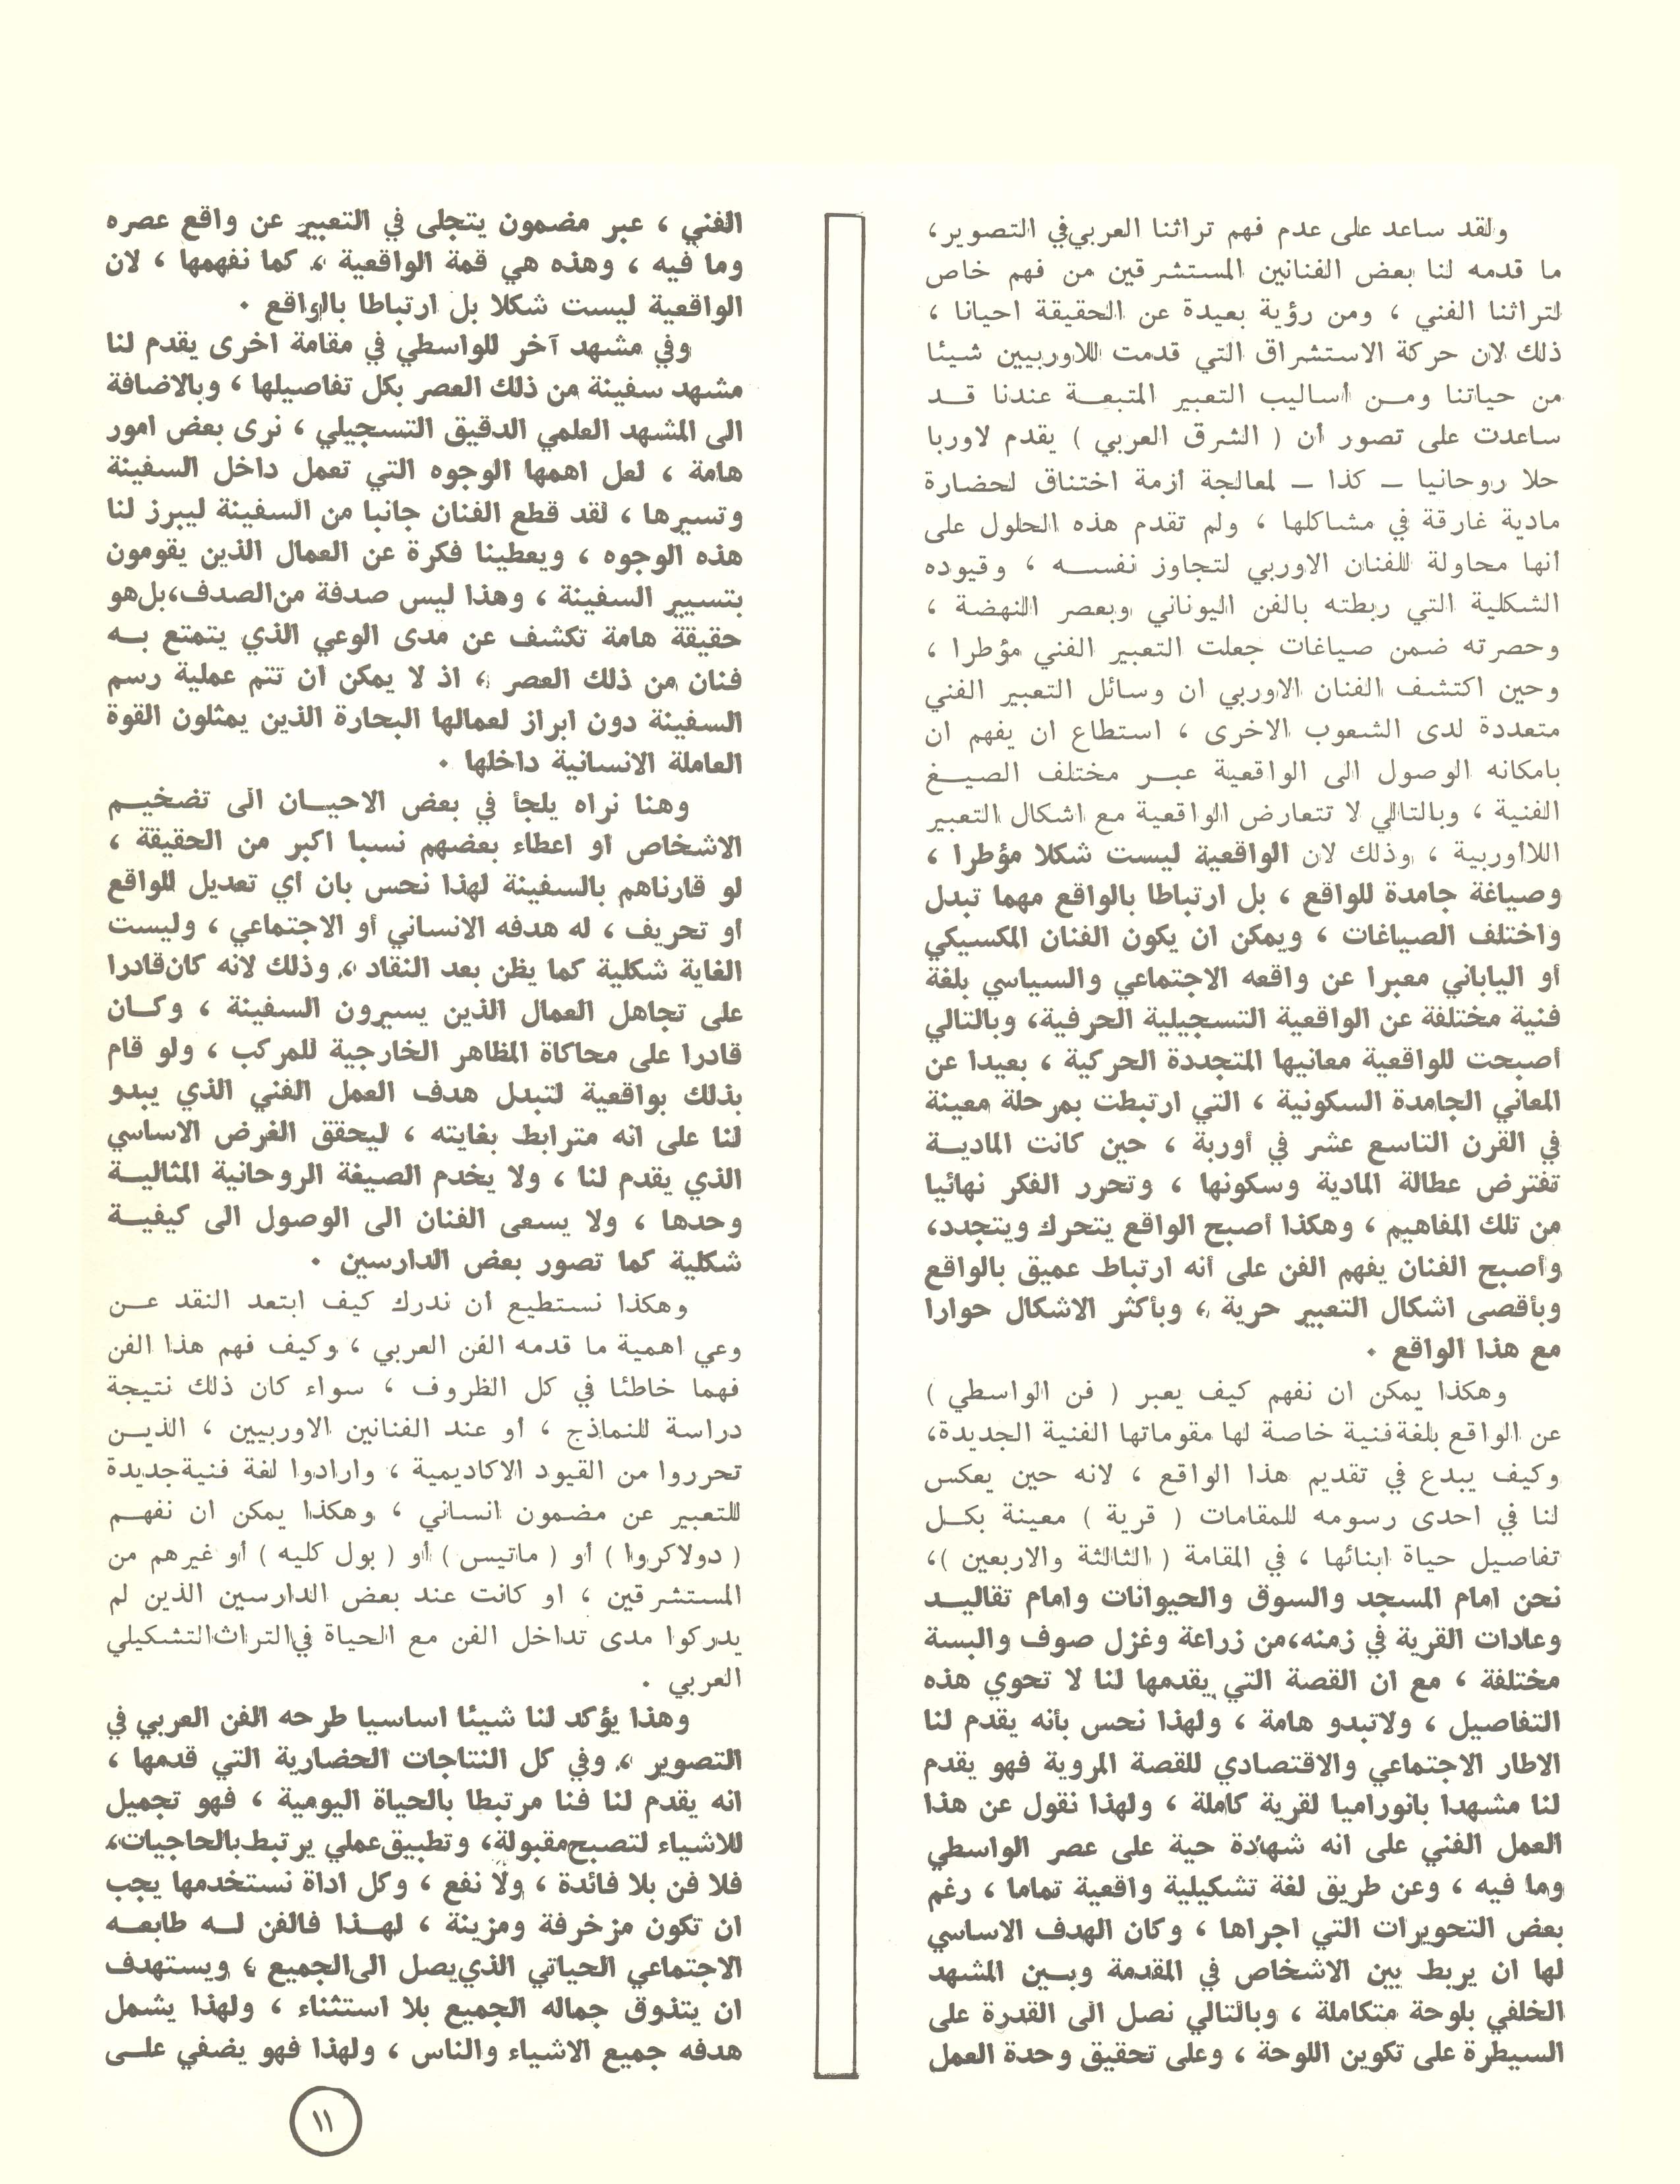 ولقد ساعد على عدم فهم تراثنا العربي في التصوير،
ما قدمه لنا بعض الفنانين المستشرقين من فهم خاص
لتراثنا الفني ، ومن رؤية بعيدة عن الحقيقة احيانا ،
ذلك لان حركة الاستشراق التي قدمت للاوربيين شيئا
من حياتنا ومـن أساليب التعبير المتبعـة عندنا قـد
ساعدت على تصور أن ( الشرق العربي ) يقدم لاوربا
حلا روحانيا ـ كذا ـ لمعالجة أزمة اختناق لحضارة
مادية غارقة في مشاكلها ، ولم تقدم هذه الحلول على
أنها محاولة للفنان الاوربي لتجاوز نفسـه ، وقيوده
الشكلية التي ربطته بالفن اليوناني وبعصر النهضة ،
وحصرته ضمن صياغات جعلت التعبير الفني مؤطرا ،
وحين اكتشف الفنان الاوربي ان وسائل التعبير الفني
متعددة لدى الشعوب الاخرى ، استطاع ان يفهم ان
بامكانه الوصول الى الواقعية عبـر مختلف الصيـغ
الفنية ، وبالتالي لا تتعارض الواقعية مع اشكال التعبير
اللاأوربية ، وذلك لان الواقعية ليست شكلا مؤطرا ،
وصياغة جامدة للواقع ، بل ارتباطا بالواقع مهما تبدل
واختلف الصياغات ، ويمكن ان يكون الفنان المكسيكي
أو الياباني معبرا عن واقعه الاجتماعي والسياسي بلغة
فنية مختلفة عن الواقعية التسجيلية الحرفية، وبالتالي
أصبحت للواقعية معانيها المتجددة الحركية ، بعيدا عن
المعاني الجامدة السكونية ، التي ارتبطت بمرحلة معينة
في القرن التاسع عشر في أوربة ، حين كانت الماديـة
تفترض عطالة المادية وسكونها ، وتحرر الفكر نهائيا
من تلك المفاهيم ، وهكذا أصبح الواقع يتحرك ويتجدد،
وأصبح الفنان يفهم الفن على أنه ارتباط عميق بالواقع
وبأقصى اشكال التعبير حرية ، وبأكثر الاشكال حوارا
مع هذا الواقع .
وهكذا يمكن ان نفهم كيف يعبر ( فن الواسطي )
عن الواقع بلغة فنية خاصة لها مقوماتها الفنية الجديدة،
وكيف يبدع في تقديم هذا الواقع ، لانه حين يعكس
لنا في احدى رسومه للمقامات ( قرية ) معينة بكـل
تفاصيل حياة ابنائها ، في المقامة ( الثالثة والاربعين )،
نحن امام المسجد والسوق والحيوانات وامام تقاليـد
وعادات القرية في زمنه،من زراعة وغزل صوف والبسة
مختلفة ، مع ان القصة التي يقدمها لنا لا تحوي هذه
التفاصيل ، ولاتبدو هامة ، ولهذا نحس بأنه يقدم لنا
الاطار الاجتماعي والاقتصادي للقصة المروية فهو يقدم
لنا مشهدا بانوراميا لقرية كاملة ، ولهذا نقول عن هذا
العمل الفني على انه شهادة حية على عصر الواسطي
وما فيه ، وعن طريق لغة تشكيلية واقعية تماما ، رغم
بعض التحويرات التي اجراها ، وكان الهدف الاساسي
لها ان يربط بين الاشخاص في المقدمة وبـين المشهد
الخلفي بلوحة متكاملة ، وبالتالي نصل الى القدرة على
السيطرة على تكوين اللوحة ، وعلى تحقيق وحدة العمل
الفني ، عبر مضمون يتجلى في التعبير عن واقع عصره
وما فيه ، وهذه هي قمة الواقعية ، كما نفهمها ، لان
الواقعية ليست شكلا بل ارتباطا بالواقع .
وفي مشهد آخر للواسطي في مقامة اخرى يقدم لنا
مشهد سفينة من ذلك العصر بكل تفاصيلها ، وبالاضافة
الى المشهد العلمي الدقيق التسجيلي ، نرى بعض امور
هامة ، لعل اهمها الوجوه التي تعمل داخل السفينة
وتسيرها ، لقد قطع الفنان جانبا من السفينة ليبرز لنا
هذه الوجوه ، ويعطينا فكرة عن العمال الذين يقومون
بتسيير السفينة ، وهذا ليس صدفة من الصدف،بل هو
حقيقة هامة تكشف عن مدى الوعي الذي يتمتع بـه
فنان من ذلك العصر ، اذ لا يمكن ان تتم عملية رسم
السفينة دون ابراز لعمالها البحارة الذين يمثلون القوة
العاملة الانسانية داخلها .
وهنا نراه يلجأ في بعض الاحيـان الى تضخيـم
الاشخاص أو اعطاء بعضهم نسبا اكبر من الحقيقة ،
لو قارناهم بالسفينة لهذا نحس بان أي تعديل للواقع
أو تحريف ، له هدفه الانساني أو الاجتماعي ، وليست
الغاية شكلية كما يظن بعد النقاد ، وذلك لانه كان قادرا
على تجاهل العمال الذين يسيرون السفينة ، وكـان
قادرا على محاكاة المظاهر الخارجية للمركب ، ولو قام
بذلك بواقعية لتبدل هدف العمل الفني الذي يبدو
لنا على انه مترابط بغايته ، ليحقق الغرض الاساسي
الذي يقدم لنا ، ولا يخدم الصيغة الروحانية المثاليـة
وحدها ، ولا يسعى الفنان الى الوصول الى كيفيـة
شكلية كما تصور بعض الدارسين .
وهكذا نستطيع أن ندرك كيف ابتعد النقد عـن
وعي اهمية ما قدمه الفن العربي ، وكيف فهم هذا الفن
فهما خاطئا في كل الظروف ، سواء كان ذلك نتيجة
دراسة للنماذج ، أو عند الفنانين الاوربيين ، الذيـن
تحرروا من القيود الاكاديمية ، وارادوا لغة فنية جديدة
للتعبير عن مضمون انساني ، وهكذا يمكن ان نفهـم
( دولاكروا ) أو ( ماتيس ) أو ( بول كليه ) أو غيرهم من
المستشرقين ، او كانت عند بعض الدارسين الذين لم
يدركوا مدى تداخل الفن مع الحياة في التراث التشكيلي
العربي .
وهذا يؤكد لنا شيئا اساسيا طرحه الفن العربي في
التصوير ، وفي كل النتاجات الحضارية التي قدمها ،
انه يقدم لنا فنا مرتبطا بالحياة اليومية ، فهو تجميل
للاشياء لتصبح مقبولة، وتطبيق عملي يرتبط بالحاجيات،
فلا فن بلا فائدة ، ولا نفع ، وكل اداة نستخدمها يجب
ان تكون مزخرفة ومزينة ، لهـذا فالفن لـه طابعـه
الاجتماعي الحياتي الذي يصل الى الجميع ، ويستهدف
ان يتذوق جماله الجميع بلا استثناء ، ولهذا يشمل
هدفه جميع الاشياء والناس ، ولهذا فهو يضفي علـى
١١